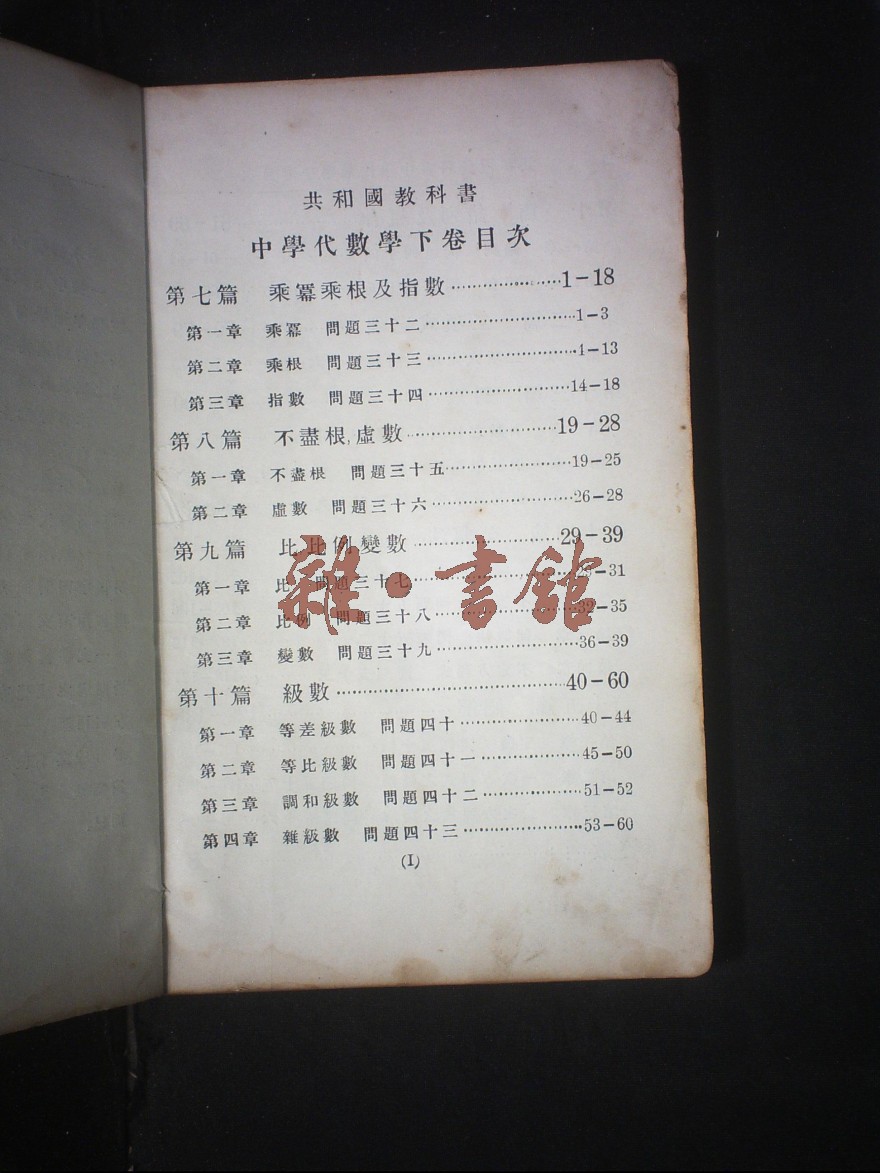 共和國教科書
中學代數學下卷目次
第七篇 乘冪乘根及指數……………………1-18
第一章 乘冪 問題三十二……………………1-3
第二章 乘根 問題三十三……………………4-13
第三章 指數 問題三十四……………………14-18
第八篇 不盡根,虛數……………………19-28
第一章 不盡根 問題三十五……………………19-25
第二章 虛數 問題三十六……………………26-28
第九篇 比,比例,變數……………………29-39
第一章 比 問題三十七……………………29-31
第二章 比例 問題三十八……………………32-35
第三章 變數 問題三十九……………………36-39
第十篇 級數……………………40-60
第一章 等差級數 問題四十……………………40-44
第二章 等比級數 問題四十一……………………45-50
第三章 調和級數 問題四十二……………………51-52
第四章 雜級數 問題四十三……………………53-60
(I)
雜·書館